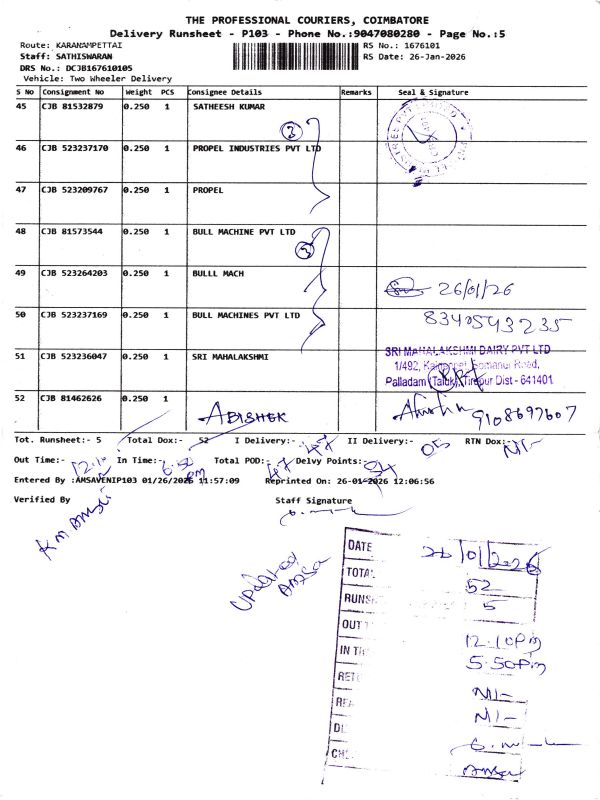 THE PROFESSIONAL COURIERS, COIMBATORE
Delivery Runsheet - P103 - Phone No.:9047080280 - Page No.:5
Route: KARANAMPETTAI RS No.: 1676101
Staff: SATHISWARAN RS Date: 26-Jan-2026
DRS No.: DCJB167610105
Vehicle: Two Wheeler Delivery
S No Consignment No Weight PCS Consignee Details Remarks Seal & Signature
45 CJB 81532879 0.250 1 SATHEESH KUMAR
3
46 CJB 523237170 0.250 1 PROPEL INDUSTRIES PVT LTD
47 CJB 523209767 0.250 1 PROPEL
48 CJB 81573544 0.250 1 BULL MACHINE PVT LTD
49 CJB 523264203 0.250 1 BULLL MACH 26/01/26
50 CJB 523237169 0.250 1 BULL MACHINES PVT LTD 8340543235
51 CJB 523236047 0.250 1 SRI MAHALAKSHMI SRI MAHALAKSHMI DAIRY PVT LTD
1/492, Somanur Road,
Palladam (Taluk), Tirupur Dist - 641401
52 CJB 81462626 0.250 1 ABISHEK 9108697607
Tot. Runsheet:- 5 Total Dox:- 52 I Delivery:- 47 II Delivery:- 05 RTN Dox:- Nil-
Out Time:- 12.10 In Time:- 5.50 pm Total POD:- 47 Delvy Points:-
Entered By :AMSAVENIP103 01/26/2026 11:57:09 Reprinted On: 26-01-2026 12:06:56
Verified By Staff Signature
Updated
Amsa
DATE 26/01/2026
TOTAL 52
RUNS 5
OUT T 12.10pm
IN TI 5.50pm
RET Nil-
RE Nil-
DL
CH Amsa